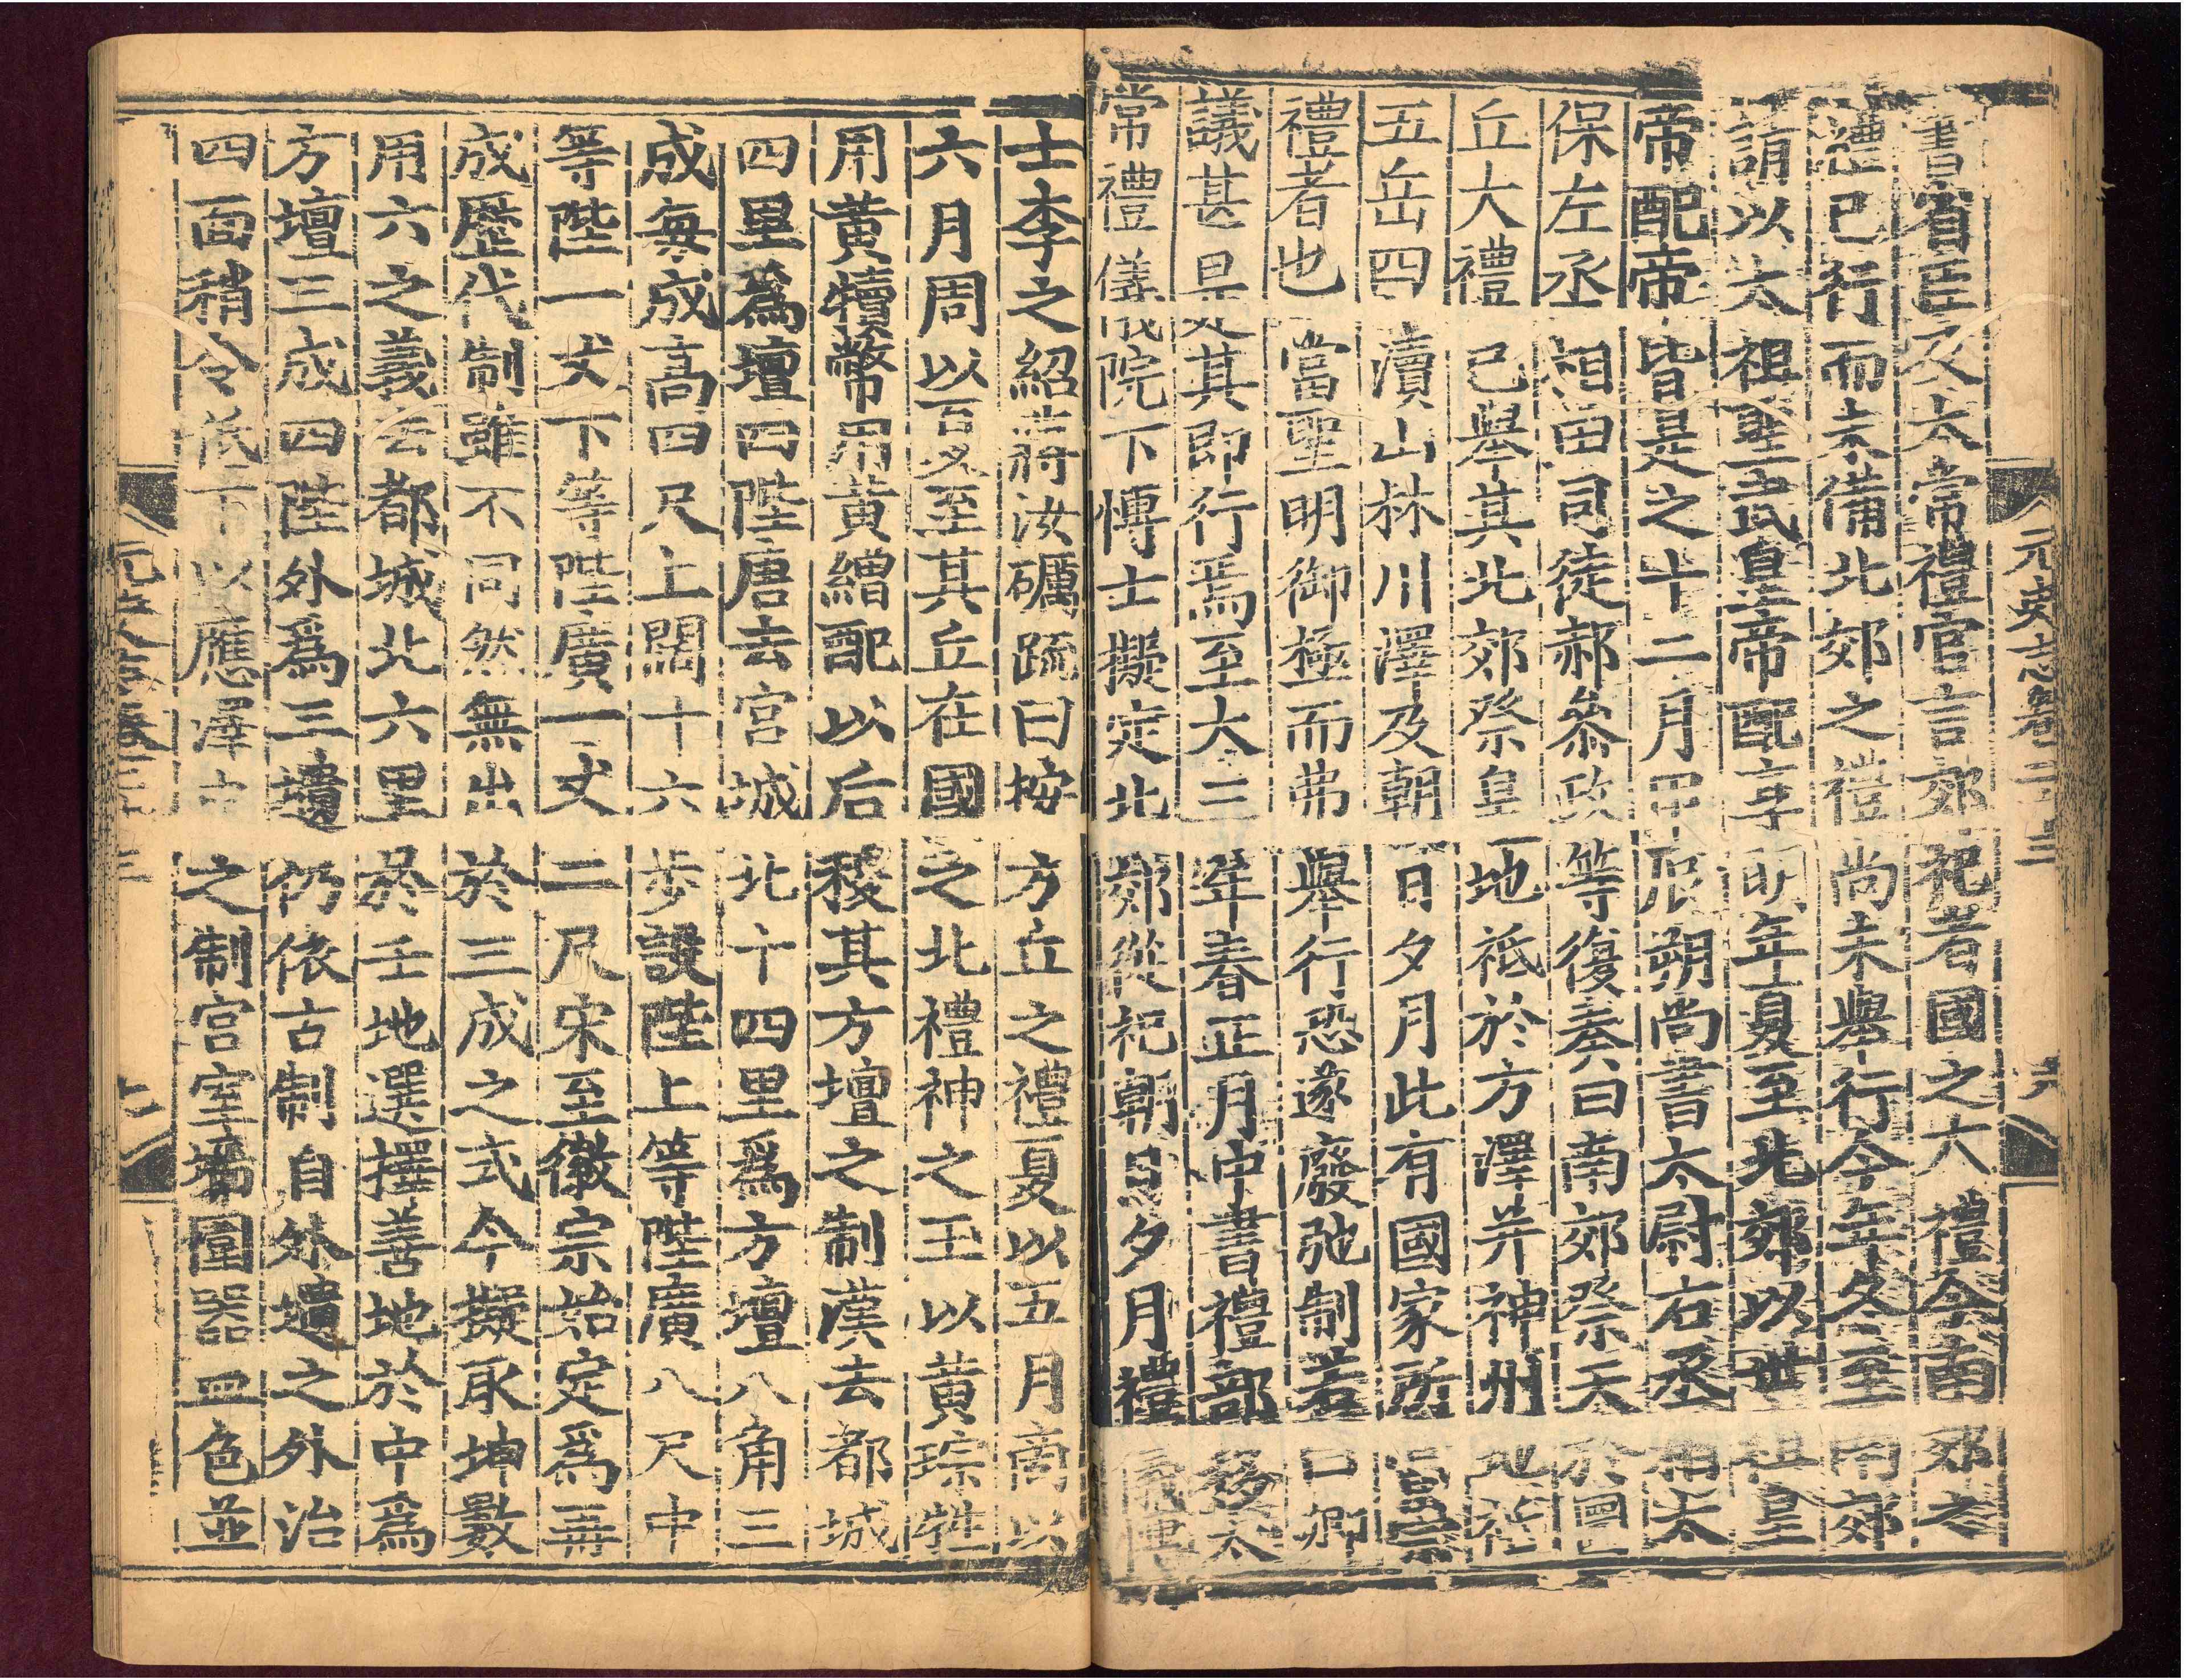 書省臣又太常禮官言郊祀者國之大禮今南郊之
禮已行而未備北郊之禮尚未舉行今年冬至南郊
請以太祖聖武皇帝配享明年夏至北郊以世祖皇
帝配帝皆是之十二月甲辰朔尚書太尉右丞相太
保左丞相田司徒郝參政等復奏曰南郊祭天於圜
丘大禮已舉其北郊祭皇地祇於方澤并神州地祇
五岳四瀆山林川澤及朝日夕月此有國家所當崇
禮者也當聖明御極而弗舉行恐遂廢弛制若曰卿
議甚是其即行焉至大三年春正月中書禮部移太
常禮儀院下博士擬定北郊從祀朝日夕月禮儀博
士李之紹蔣汝礪疏曰按方丘之禮夏以五月商以
六月周以夏至其丘在國之北禮神之玉以黃琮牲
用黃犢幣用黃繒配以后稷其方壇之制漢去都城
四里為壇四陛唐去宮城北十四里為方壇八角三
成每成高四尺上闊十六步設陛上等陛廣八尺中
等陛一丈下等陛廣一丈二尺宋至徽宗始定為再
成歷代制雖不同然無出於三成之式今擬取坤數
用六之義去都城北六里於壬地選擇善地於中為
方壇三成四陛外為三壝仍依古制自外壝之外治
四面稍令低下以應澤中之制宮室墻圍器皿色並
元史志卷二十三
六
元史志卷二十三
七